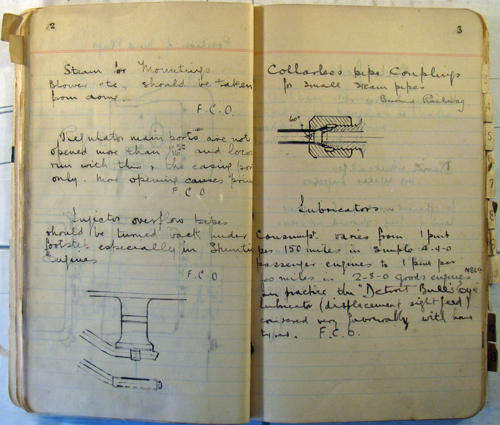 2
Steam for Mountings
Blower etc. should be taken
from dome.
F.C.O.
Regulator main ports are not
opened more than and locos
run with this in the casing port
only. More opening causes prim
F.C.O
Injector overflow pipes
should be turned back under
footstep especially in Shunting
Engines
F.C.O
3
Collarless pipe Couplings
for small steam pipes
Burma Railway
60°
Lubricators
Consumpt. varies from 1 pint
per 150 miles in Simple 4-4-0
passenger engines to 1 pint per
miles in 2-8-0 Goods engines
practice the "Detroit Bulls Eye"
lubricator (displacement sight feed)
very favourably with
types. F.C.O.